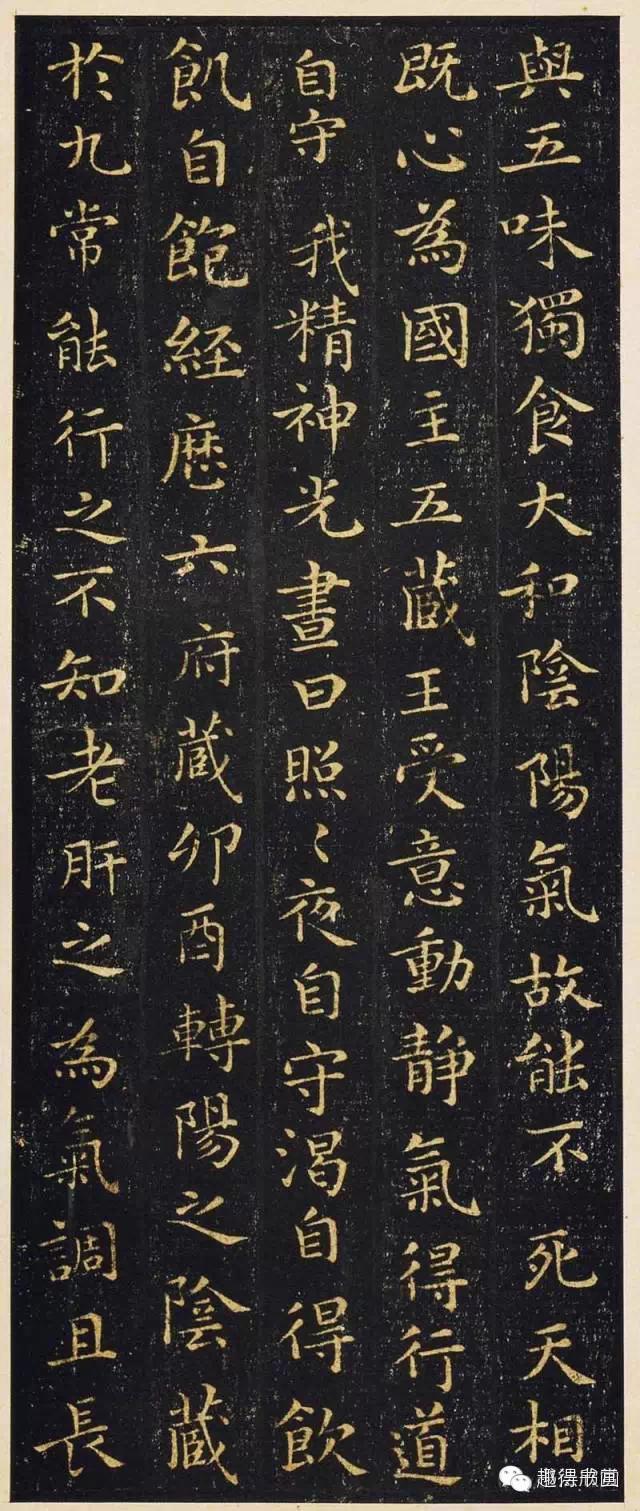 與五味獨食大和陰陽氣故能不死天相
既心為國主五藏王受意動静氣得行道
自守我精神光晝日照〻夜自守渴自得飲
飢自飽経歷六府藏卯酉轉陽之陰藏
於九常能行之不知老肝之為氣調且長